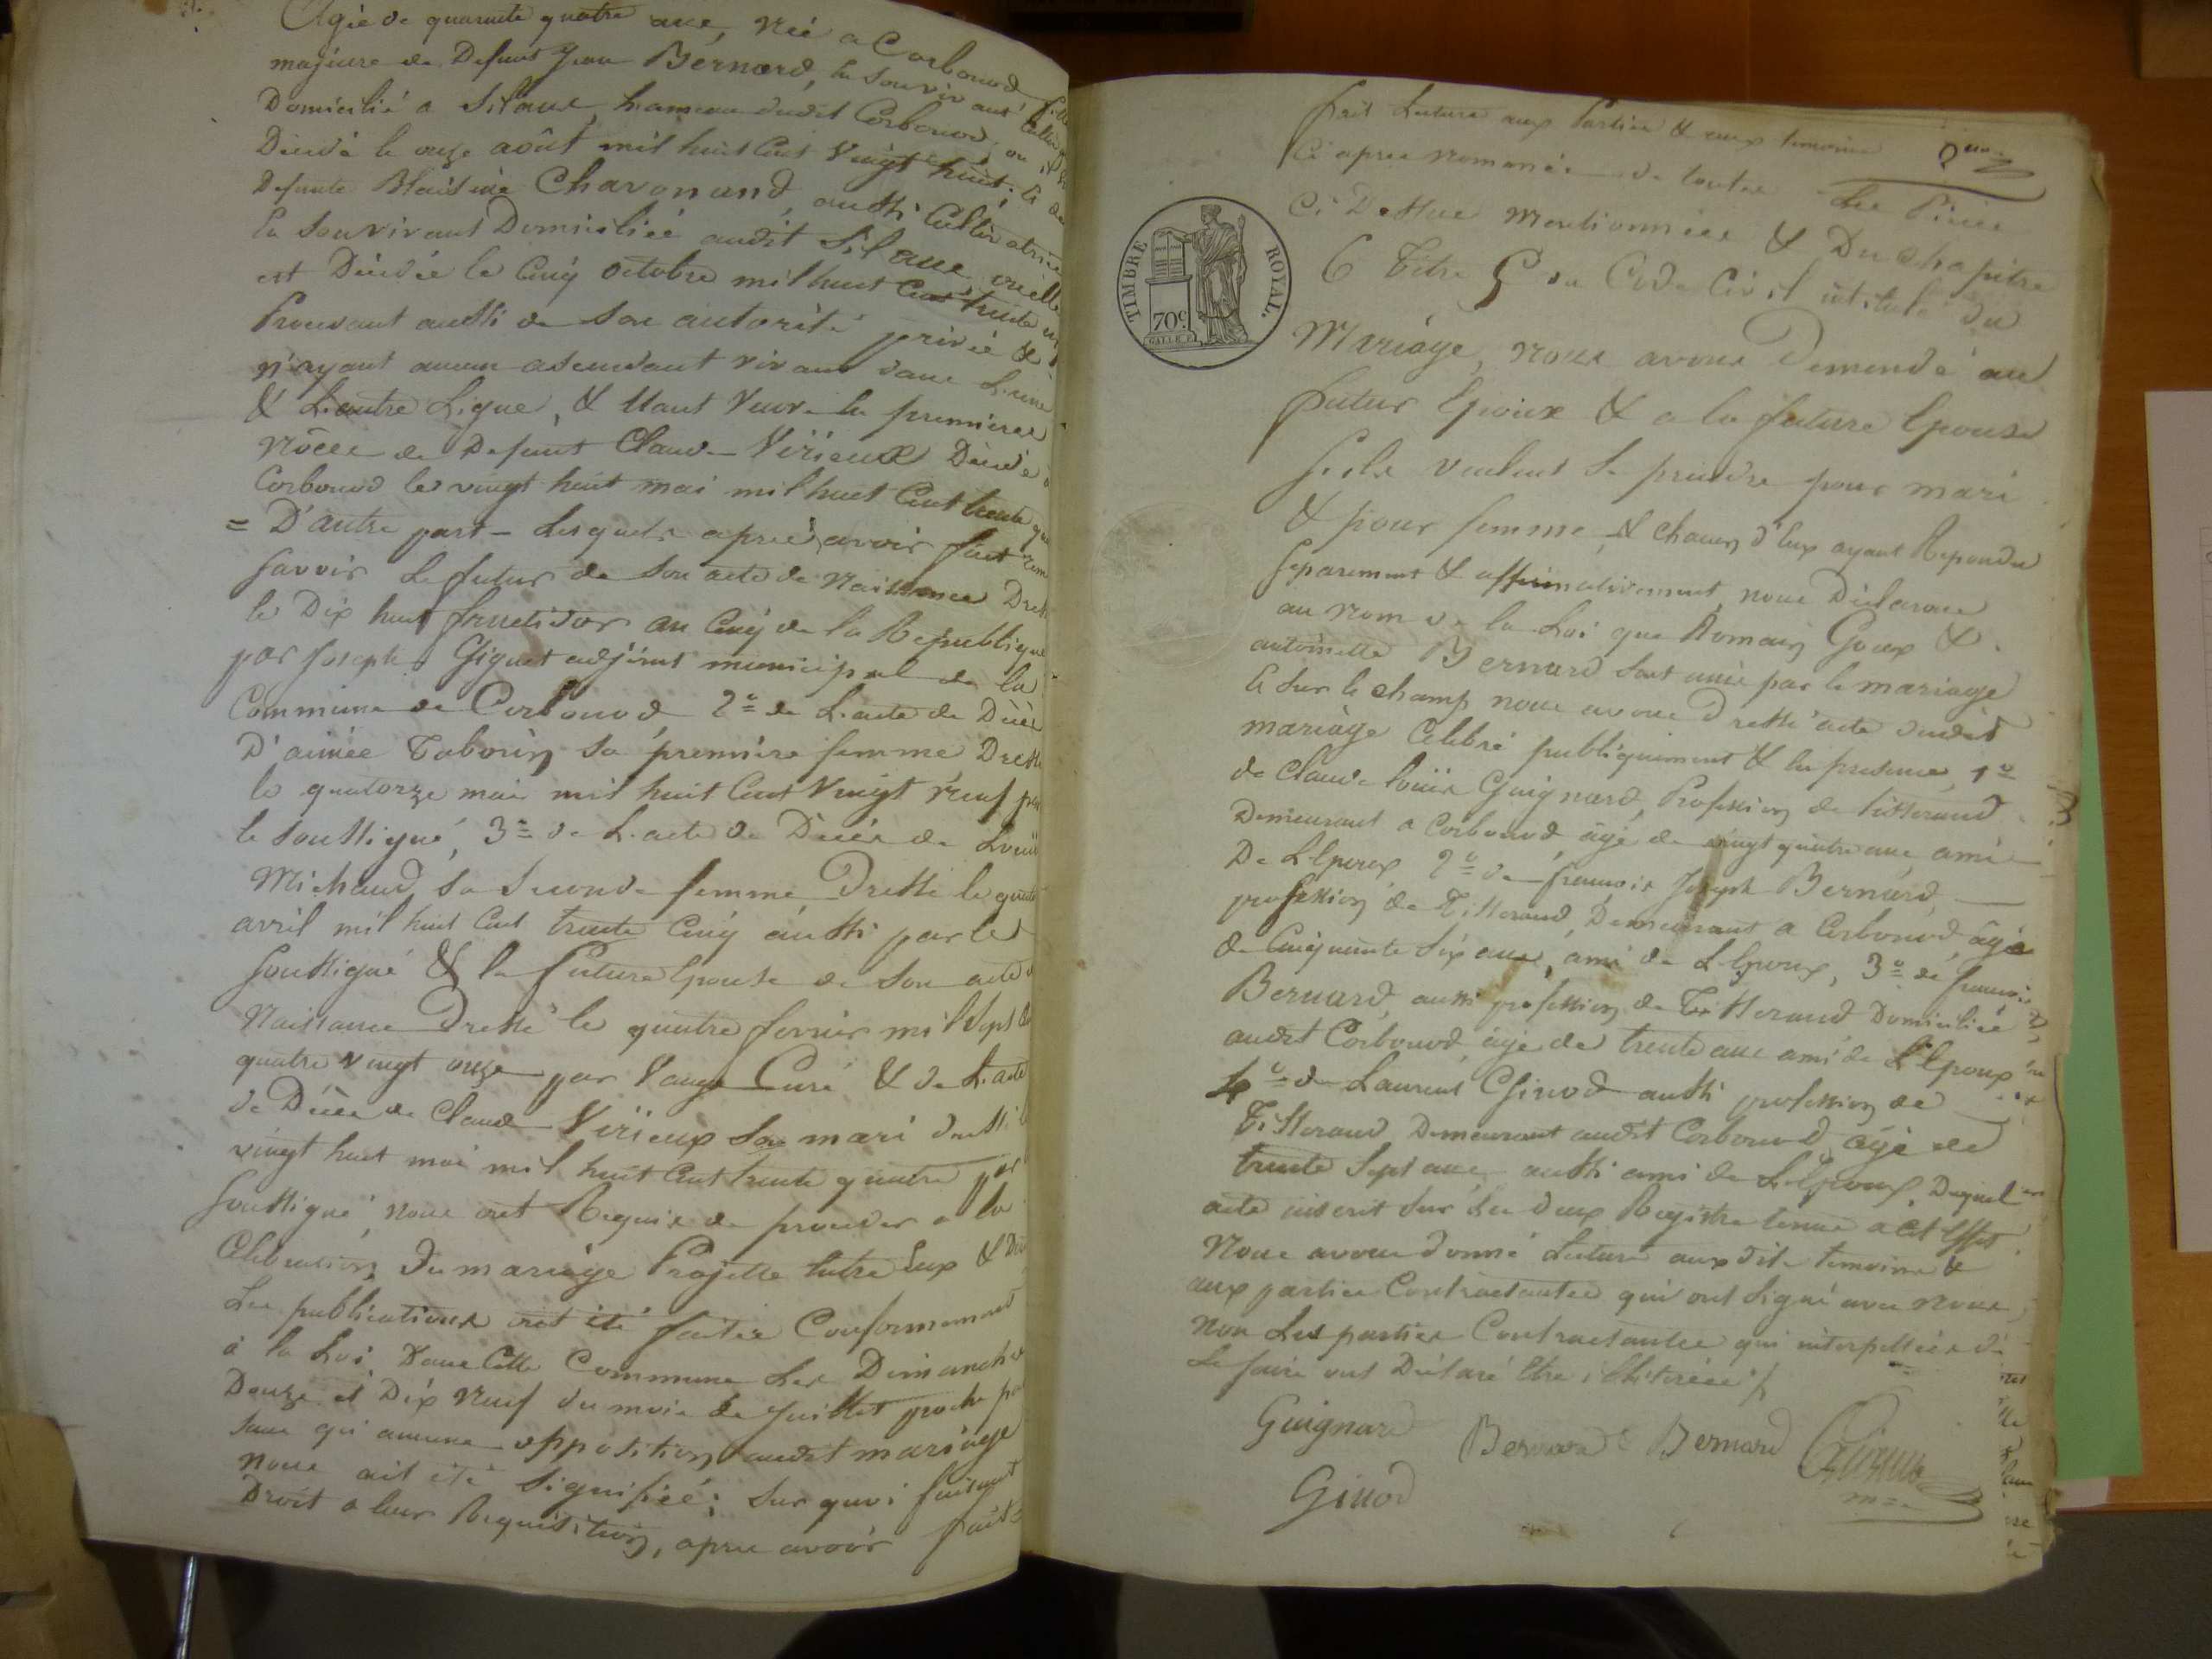 Agée de quarante quatre ans, Née a Corbonod fille
majeure de Defunt Jean Bernard, En Son vivant
Domicilié a Silans, hameau dudit Corbonod, ou il
Décédé le onze août mil huit Cent Vingt huit, & de
Defunte Blaisine Chavonand, aussi Cultivatrice
En Son vivant Domiciliée audit Silans, ou elle
est Décédée le Cinq octobre mil huit Cent trente un
Procedant aussi de Son autorité privée &
n'ayant aucun ascendant vivant dans L'une
& L'autre Ligne, & Etant Veuve En premieres
Nôces de Defunt Claude Virieux Décédé à
Corbonod le vingt huit mai mil huit Cent trente quatre
= D'autre part - Lesquels après avoir fait
Savoir Le futur de Son acte de Naissance Dressé
le Dix huit fructidor an Cinq de la Republique
par Joseph Giguet adjoint municipal de la
Commune de Corbonod 2º de L'acte de Décès
D'aimée Taborin Sa première femme Dressé
le quatorze mai mil huit Cent Vingt neuf par
le Soussigné, 3º de L'acte de Décès de Louise
Michaud, Sa Seconde femme Dressé le quatre
avril mil huit Cent trente Cinq aussi par le
Soussigné & la Future Epouse de Son acte de
Naissance Dressé le quatre fevrier mil Sept Cent
quatre vingt onze par Vauge Curé & de L'acte
de Décès de Claude Virieux Son mari Dressé le
vingt huit mai mil huit Cent trente quatre par
Soussigné, nous ont Requis de proceder a la
Célébration Du mariage Projetté Entre Eux & Dont
Les publications ont été faites Conformement
à la Loi Dans Cette Commune Les Dimanches
Douze et Dix Neuf du mois de Juillet proche
Sans qu'aucune opposition audit mariage
nous ait été Signifiée; Sur quoi faisant
Droit a leur Requisition, après avoir fait
2
fait Lecture aux Parties & aux temoins
Ci après Nommés de toutes Les Pièces
Ci Dessus Mentionnées & Du chapitre
6 Titre 5 du Code Civil intitulé Du
Mariage, nous avons Demandé au
futur Epoux & a la future Epouse
S'ils veulent Se prendre pour mari
& pour femme, & chacun d'Eux ayant Repondu
Separement & affirmativement, nous Déclarons
au Nom de la Loi que Romain Goux &
antoinette Bernard Sont unis par le mariage
Et Sur le champ nous avons Dressé acte dudit
mariage Célébré publiquement & En presence, 1º
de Claude Louis Guignard, Profession de Tisserand
Demeurant a Corbonod âgé de vingt quatre ans, ami
De L'Epoux 2º de françois Joseph Bernard,
profession de Tisserand, Demeurant a Corbonod âgé
de Cinquante Six ans, ami de L'Epoux, 3º de françois
Bernard, aussi profession de Tisserand Domicilié
audit Corbonod, âgé de trente ans ami de L'Epoux
4º de Laurent Ginod aussi profession de
Tisserand Demeurant audit Corbonod, âgé de
trente Sept ans, aussi ami de L'Epoux, Duquel
acte inscrit Sur les deux Registre tenus à Cet Effet
Nous avons donné Lecture auxdits temoins &
aux parties Contractantes qui ont Signé avec nous,
non Les parties Contractantes qui interpellées de
Le faire ont Déclaré Etre illiterées
Guignard Bernard Bernard
Ginod
TIMBRE ROYAL.
70c
GALLE F.